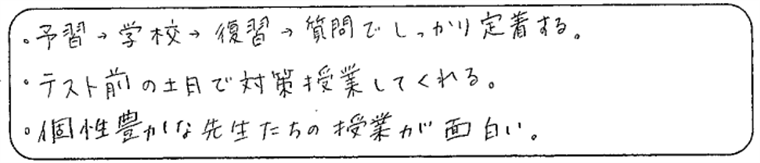 ・予習→学校→復習→質問でしっかり定着する。
・テスト前の土日で対策授業してくれる。
・個性豊かな先生たちの授業が面白い。